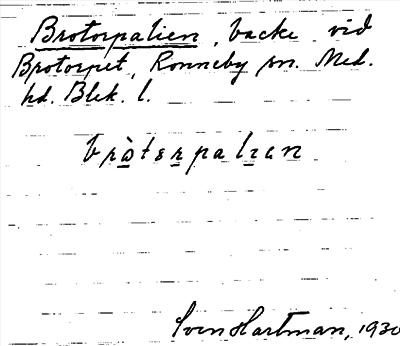 Brotorpalien, backe vid
Brotorpet, Ronneby sn. Med.
hd. Blek. l.
bròterpalian
Sven Hartman, 1930